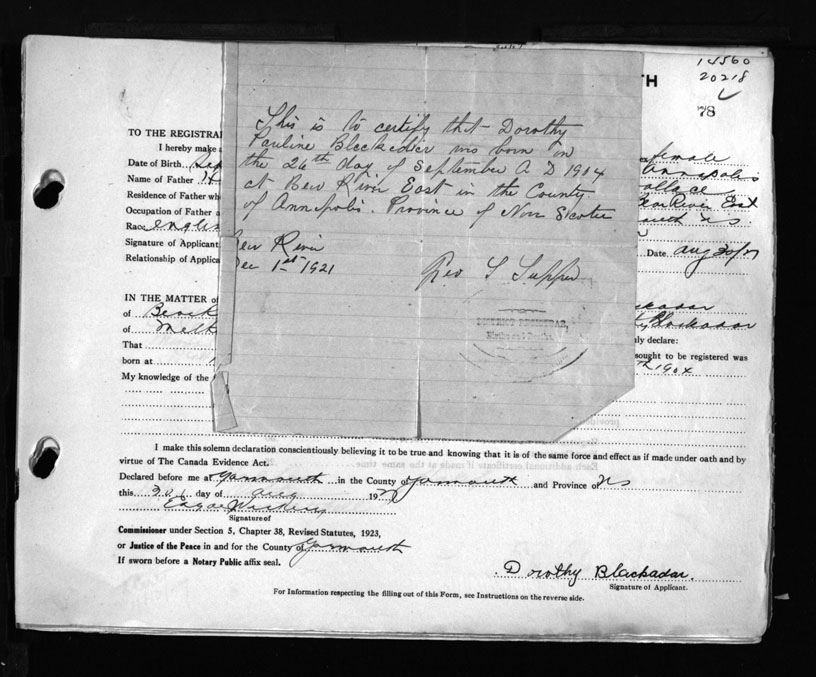 14560
20218
TH
78
This is to certify that Dorothy
Pauline Blackadar was born on
the 26th day of September A D 1904
at Bear River East in the County
of Annapolis. Province of Nova Scotia
Bear River
Dec 1st 1921
Geo S Tupper
DISTRICT REGISTRAR,
Births and Deaths
TO THE REGISTRA
I hereby make
female
Date of Birth
Annapolis
Name of Father
Wallace
Residence of Father whe
Bear River East
Occupation of Father a
Race
Signature of Applicant
Date Aug 30/
Relationship of Applica
IN THE MATTER of
of
of
Blackadar
That
nly declare:
born at
sought to be registered was
th 1904
My knowledge of the
I make this solemn declaration conscientiously believing it to be true and knowing that it is of the same force and effect as if made under oath and by
virtue of The Canada Evidence Act.
Declared before me at Yarmouth in the County of Yarmouth and Province of NS
this day of Aug 19
Signature of
Commissioner under Section 5, Chapter 38, Revised Statutes, 1923,
or Justice of the Peace in and for the County of Yarmouth
If sworn before a Notary Public affix seal.
Dorothy Blackadar.
Signature of Applicant.
For Information respecting the filling out of this Form, see Instructions on the reverse side.